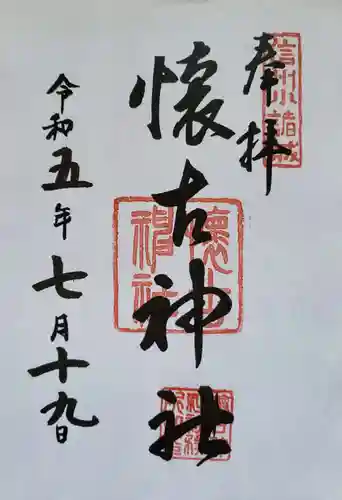 奉拝
信州小諸城
懐古神社
懐古神社
令和五年七月十九日